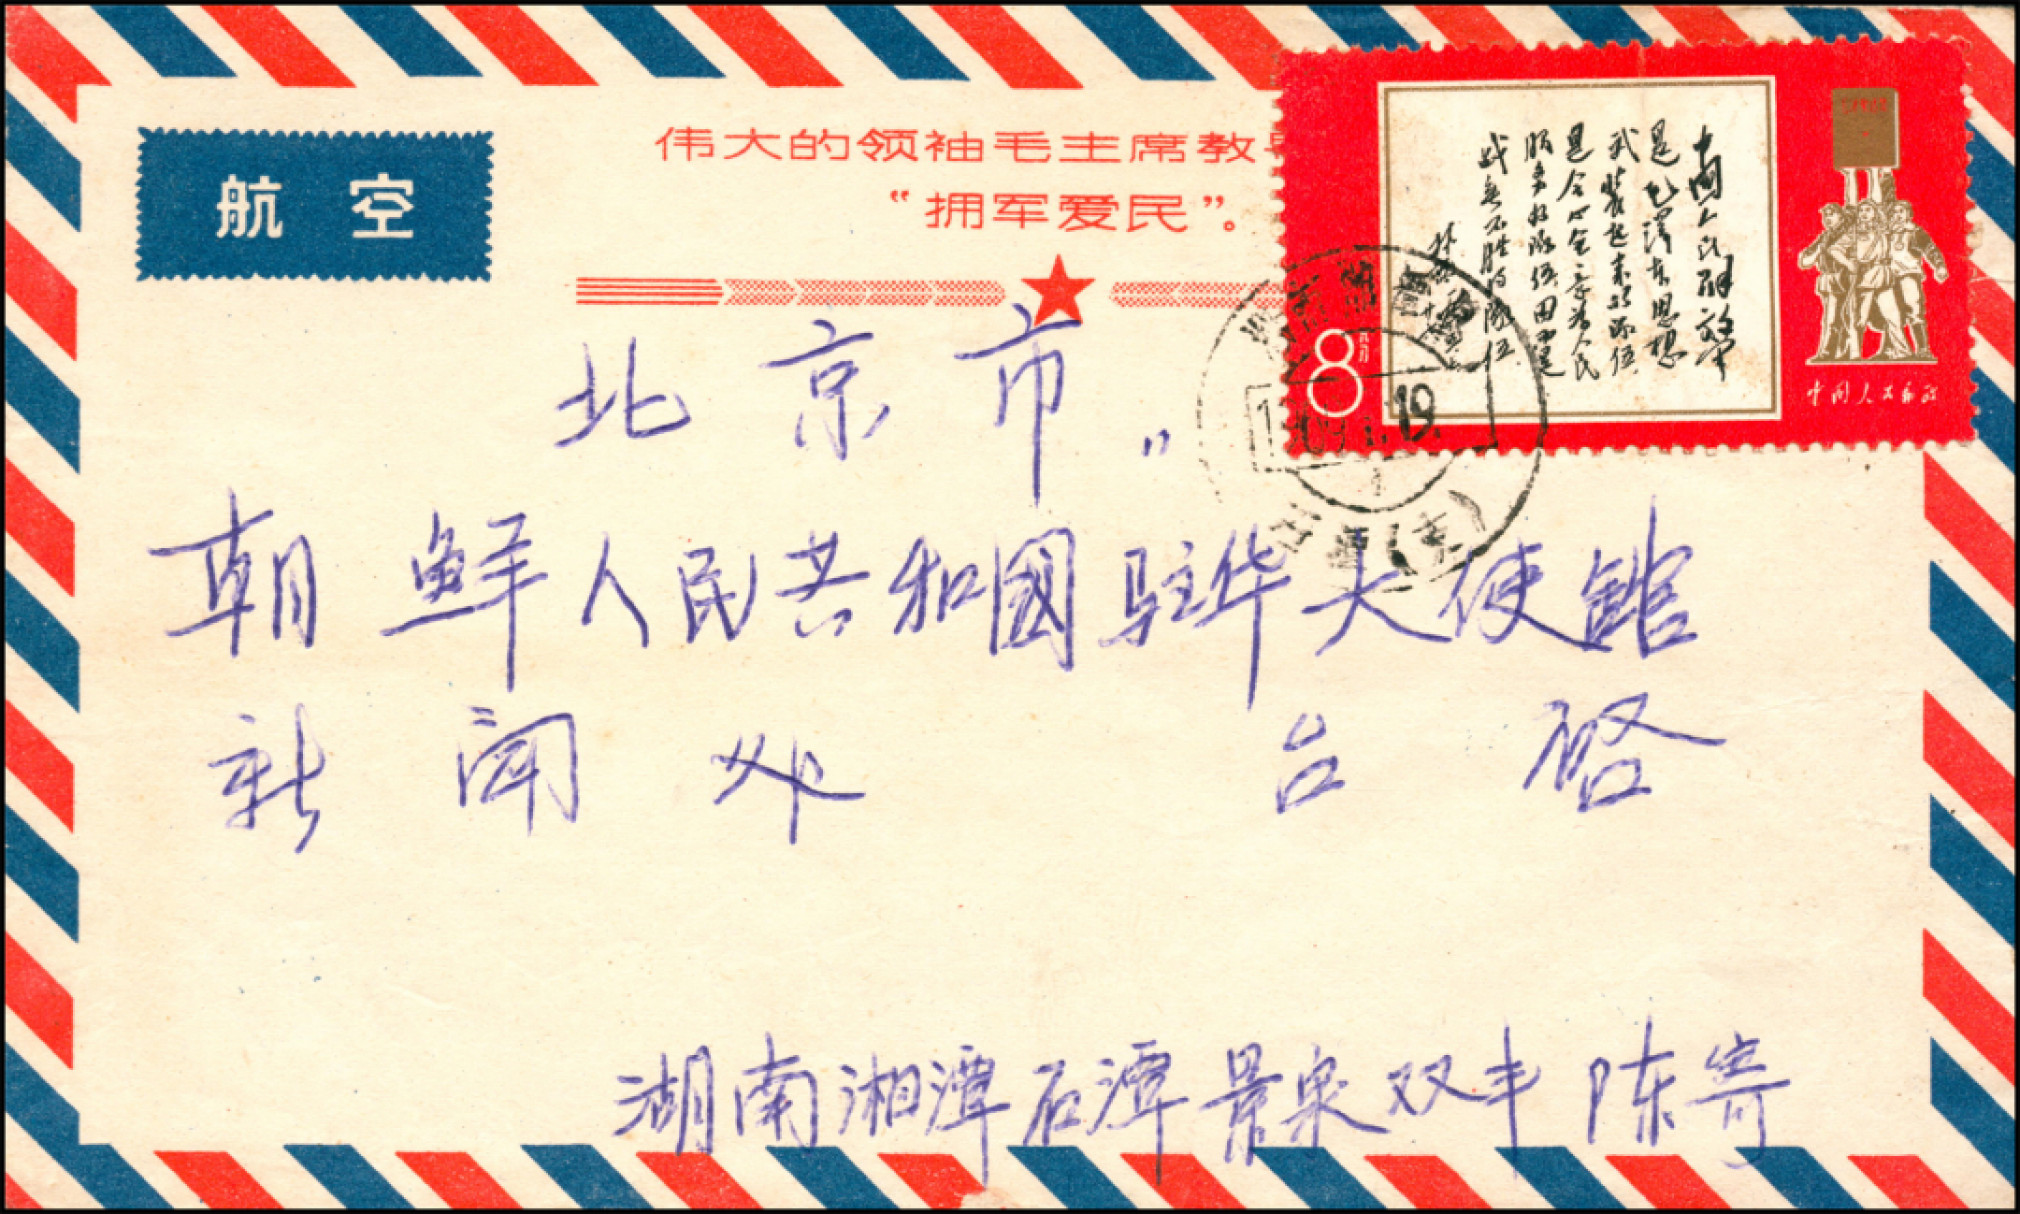 航空
伟大的领袖毛主席教
“拥军爱民”。
中国人民解放军
是毛泽东思想
武装起来的队伍
是全心全意为人民
服务的队伍因而是
战无不胜的队伍
8
中国人民邮政
19
石潭(支)
北京市,,
朝鲜人民共和國驻华大使館
新闻处 台启
湖南湘潭石潭景泉双丰陈寄